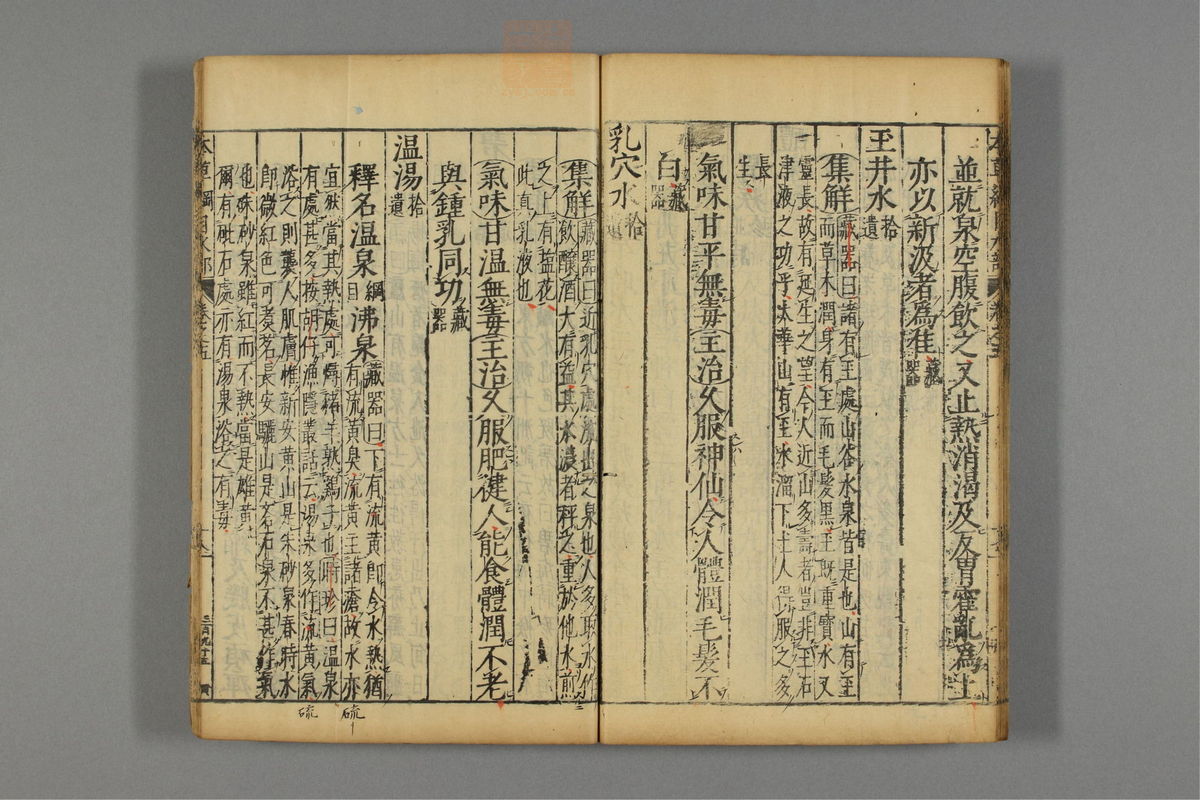 並就泉空腹飲之又止熱消渴及反胃霍亂為上
亦以新汲者為佳藏器
玉井水拾遺
集解藏器曰諸有玉處山谷水泉皆是也山有玉
而草木潤身有玉而毛髮黑玉既重寶水又
靈長故有延生之望今人近山多壽者豈非玉石
津液之功乎太華山有玉水溜下土人得服之多
長生
氣味甘平無毒主治久服神仙令人體潤毛髮不
白藏器
乳穴水拾遺
集解藏器曰近乳穴處流出之泉也人多取水作
飲釀酒大有益其水濃者秤之重於他水煎
之上有鹽花
此真乳液也
氣味甘温無毒主治久服肥健人能食體潤不老
與鍾乳同功藏器
温湯拾遺
釋名温泉綱目沸泉藏器曰下有流黄即令水熱猶
有流黄臭流黄主諸瘡故水亦
宜然當其熱處可燖猪羊熟鷄子也時珍曰温泉
有處甚多按胡仔漁隱叢話云湯泉多作流黄氣
浴之則襲人肌膚惟新安黄山是朱砂泉春時水
即微紅色可煮茗長安驪山是礜石泉不甚作氣
也朱砂泉雖紅而不熱當是雄黄
爾有砒石處亦有湯泉浴之有毒
本草綱目水部
卷之五
硫
硫